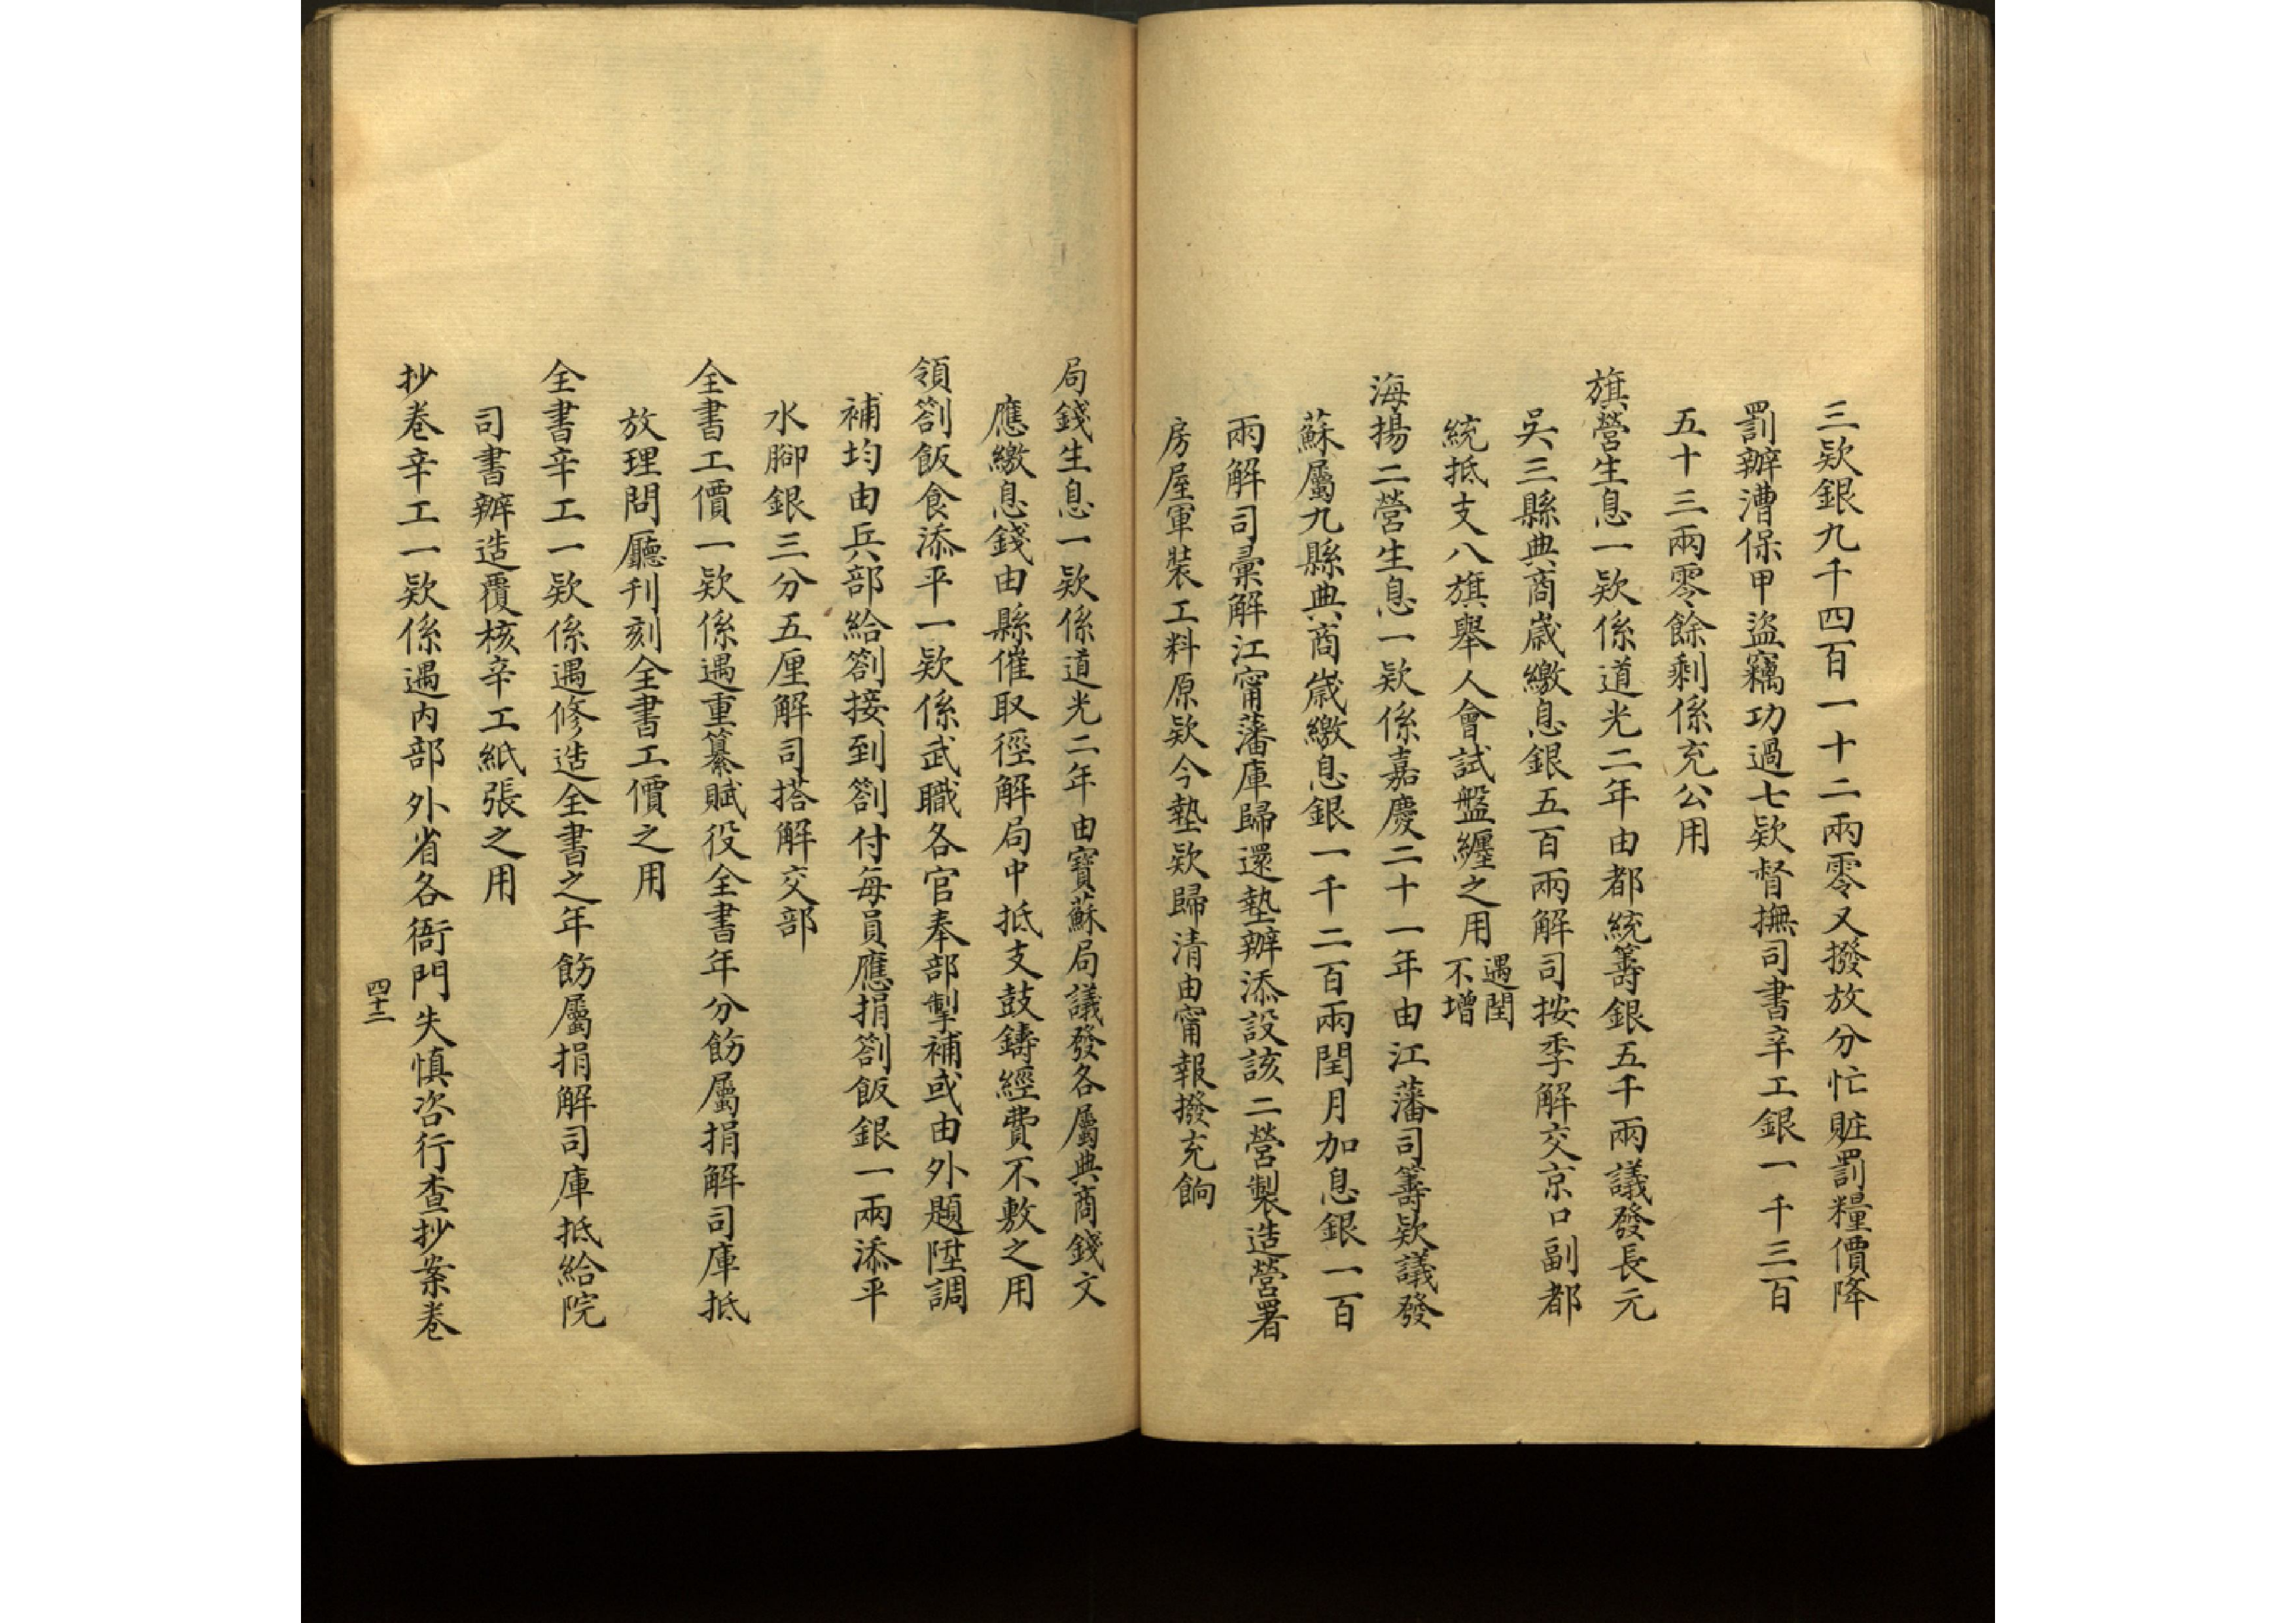 三欵銀九千四百一十二兩零又撥放分忙賍罰糧價降
罰辦漕保甲盜竊功過七欵督撫司書辛工銀一千三百
五十三兩零餘剩係充公用
旗營生息一欵係道光二年由都統籌銀五千兩議發長元
吳三縣典商歲繳息銀五百兩解司按季解交京口副都
統抵支八旗舉人會試盤纏之用遇閏不增
海揚二營生息一欵係嘉慶二十一年由江藩司籌欵議發
蘇屬九縣典商歲繳息銀一千二百兩閏月加息銀一百
兩解司彚解江甯藩庫歸還墊辦添設該二營製造營署
房屋軍裝工料原欵今墊欵歸清由甯報撥充餉
局錢生息一欵係道光二年由寶蘇局議發各屬典商錢文
應繳息錢由縣催取徑解局中抵支鼓鑄經費不敷之用
領劄飯食添平一欵係武職各官奉部掣補或由外題陞調
補均由兵部給劄接到劄付每員應捐劄飯銀一兩添平
水腳銀三分五厘解司搭解交部
全書工價一欵係遇重纂賦役全書年分飭屬捐解司庫抵
放理問廳刊刻全書工價之用
全書辛工一欵係遇修造全書之年飭屬捐解司庫抵給院
司書辦造覆核辛工紙張之用
抄卷辛工一欵係遇內部外省各衙門失慎咨行查抄案卷
四十二